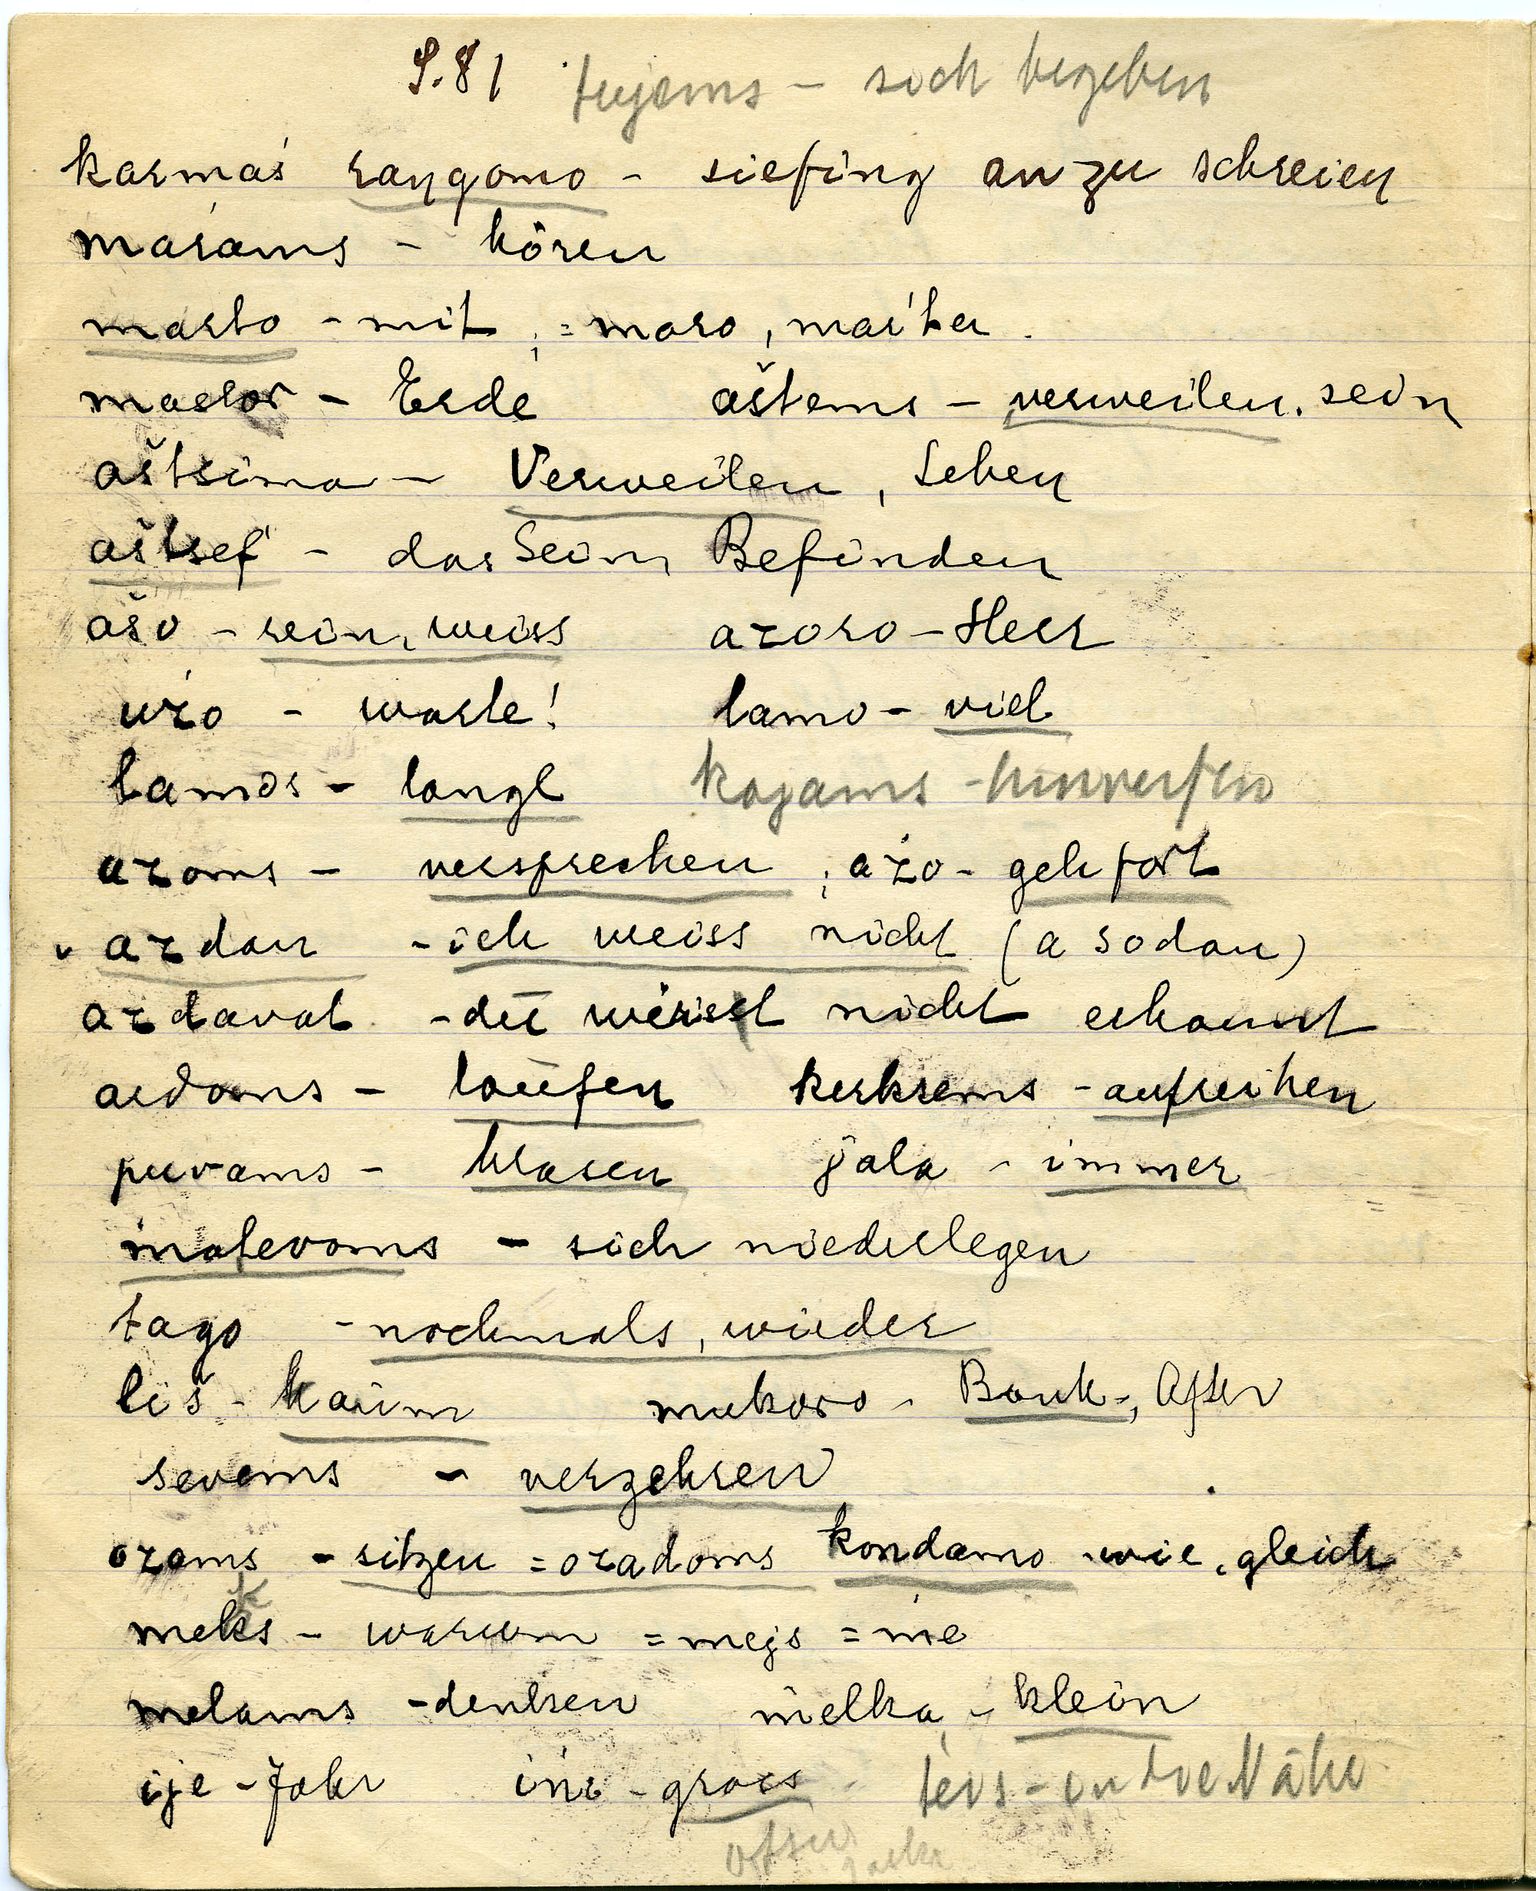 S. 81 tujems - sich begeben
karmaś rangomo - sie fing an zu schreien
maŕams - hören
marto - mit ; = maro, mart́en
mastor - Erde aštems - verweilen, sein
aštsima - Verweilen, Leben
aštsef - das Sein, Befinden
ašo - rein, weiss azoro - Herr
užo - warte! lamo - viel
lamos - langl kajams - hinwerfen
azoms - versprechen ; ažo - geh fort
azdan - ich weiss nicht (a sodan)
azdavat - du wirst nicht erkannt
ardoms - laufen kerksems - aufreihen
puvams - blasen jala - immer
matevoms - sich niederlegen
tago - nochmals, wieder
liš - kaum mukoro - Bank, After
sevems - verzehren
ozams - sitzen = ozadoms kondamo - wie, gleich
meks - warum = mejs = me
melams - denken melka - klein
ije - Jahr ine - gross teis - in die Nähe